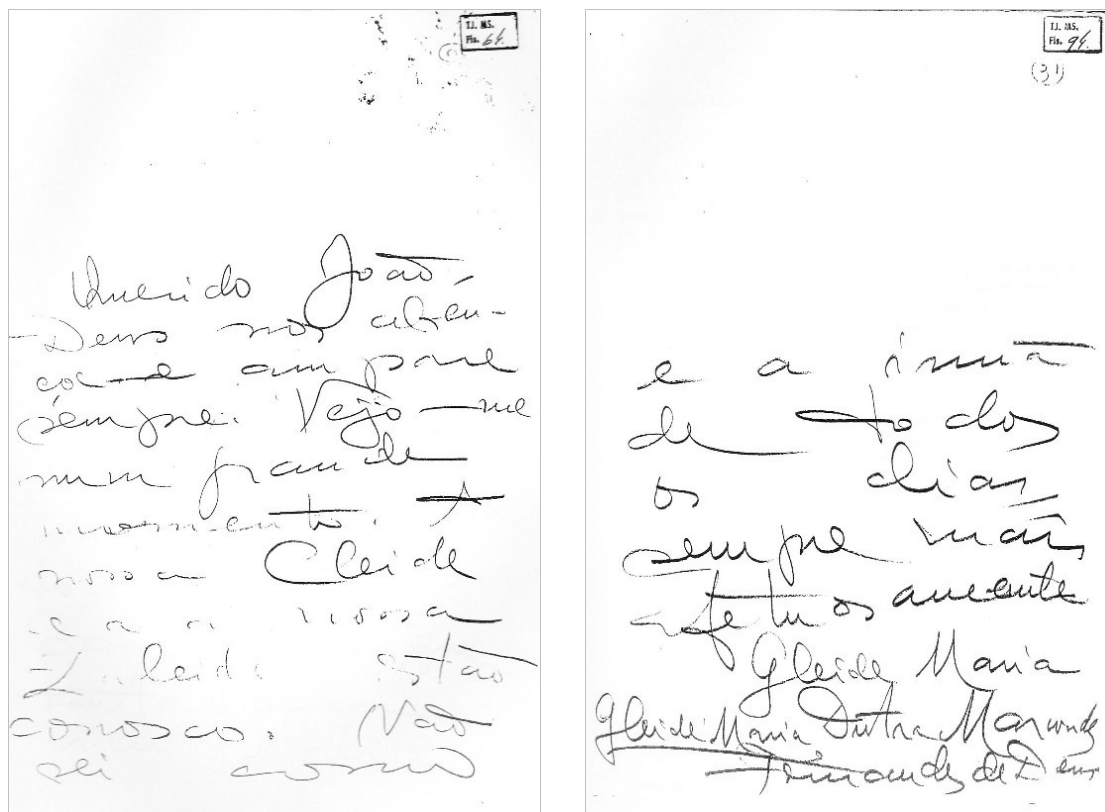 TJ. MS.
Fls. 64
Querido João,
Deus nos aben-
çoe e ampare
sempre. Vejo-me
num grande
movimento. A
nossa Cleide
e a nossa
Zuleide estão
conosco. Não
sei como
TJ. MS.
Fls. 94
(31)
e a irmã
de todos
os dias,
sempre mais
afetuosamente
Gleide Maria
Gleide Maria Dutra Marcondes
Fernandes de Deus